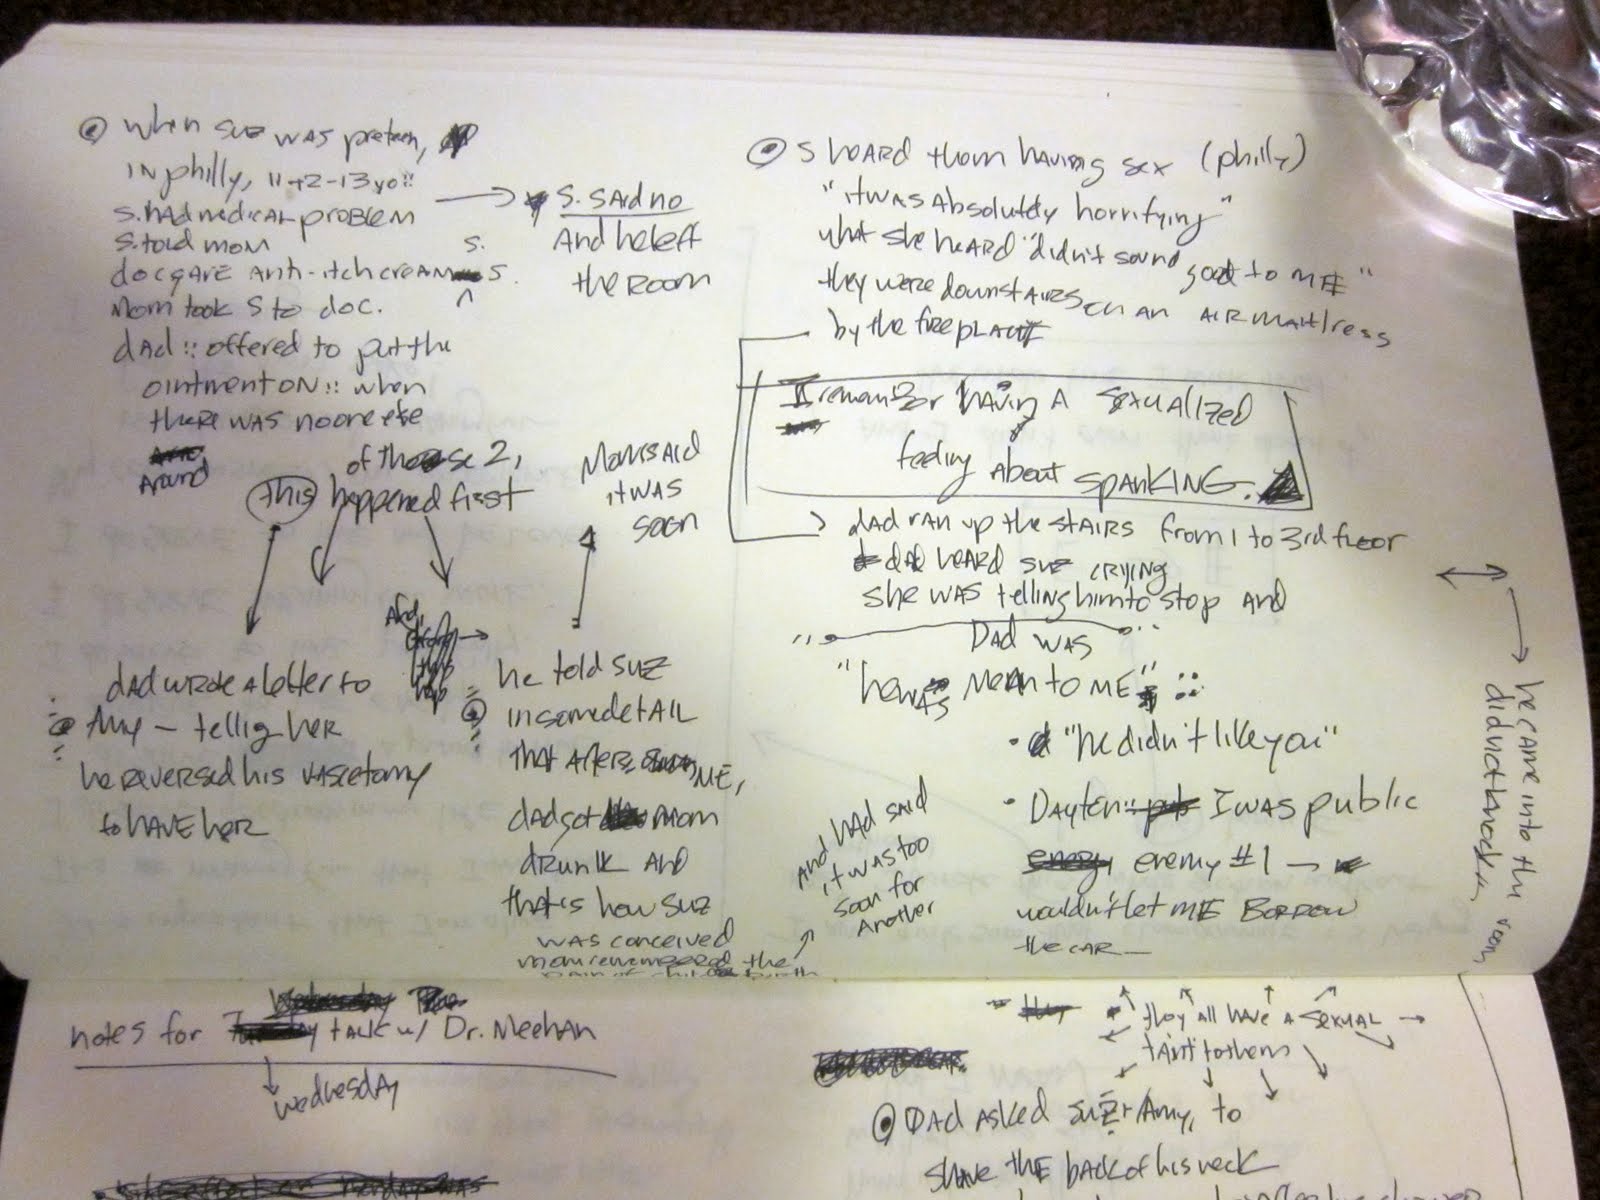 when suz was preteen,
in philly, 11-12-13 yo::
S. had medical problem
S. told mom
doc gave anti-itch cream S.
s.
mom took S to doc.
dad :: offered to put the
ointment on :: when
there was no one else
around
→ S. said no
and he left
the room
of these 2,
this happened first
Mom said
it was
soon
dad wrote a letter to
Amy — telling her
he reversed his vasectomy
to have her
And,
he told suz
in some detail
that after ME,
dad got mom
drunk and
that's how suz
was conceived
mom remembered the
pain of child birth
and had said
it was too
soon for
another
S heard them having sex (philly)
"it was absolutely horrifying"
what she heard "didn't sound good to ME"
they were downstairs on an air mattress
by the fireplace
I remember having a sexualized
feeling about spanking.
dad ran up the stairs from 1 to 3rd floor
dad heard suz crying
she was telling him to stop and
Dad was
"he was mean to ME" ::
• "he didn't like you"
• Dayton:: I was public
enemy #1 —
wouldn't let ME borrow
the car —
he came into the room,
did not knock
notes for talk w/ Dr. Meehan
wednesday
they all have a sexual
taint to them
Dad asked suz + Amy, to
shave the back of his neck